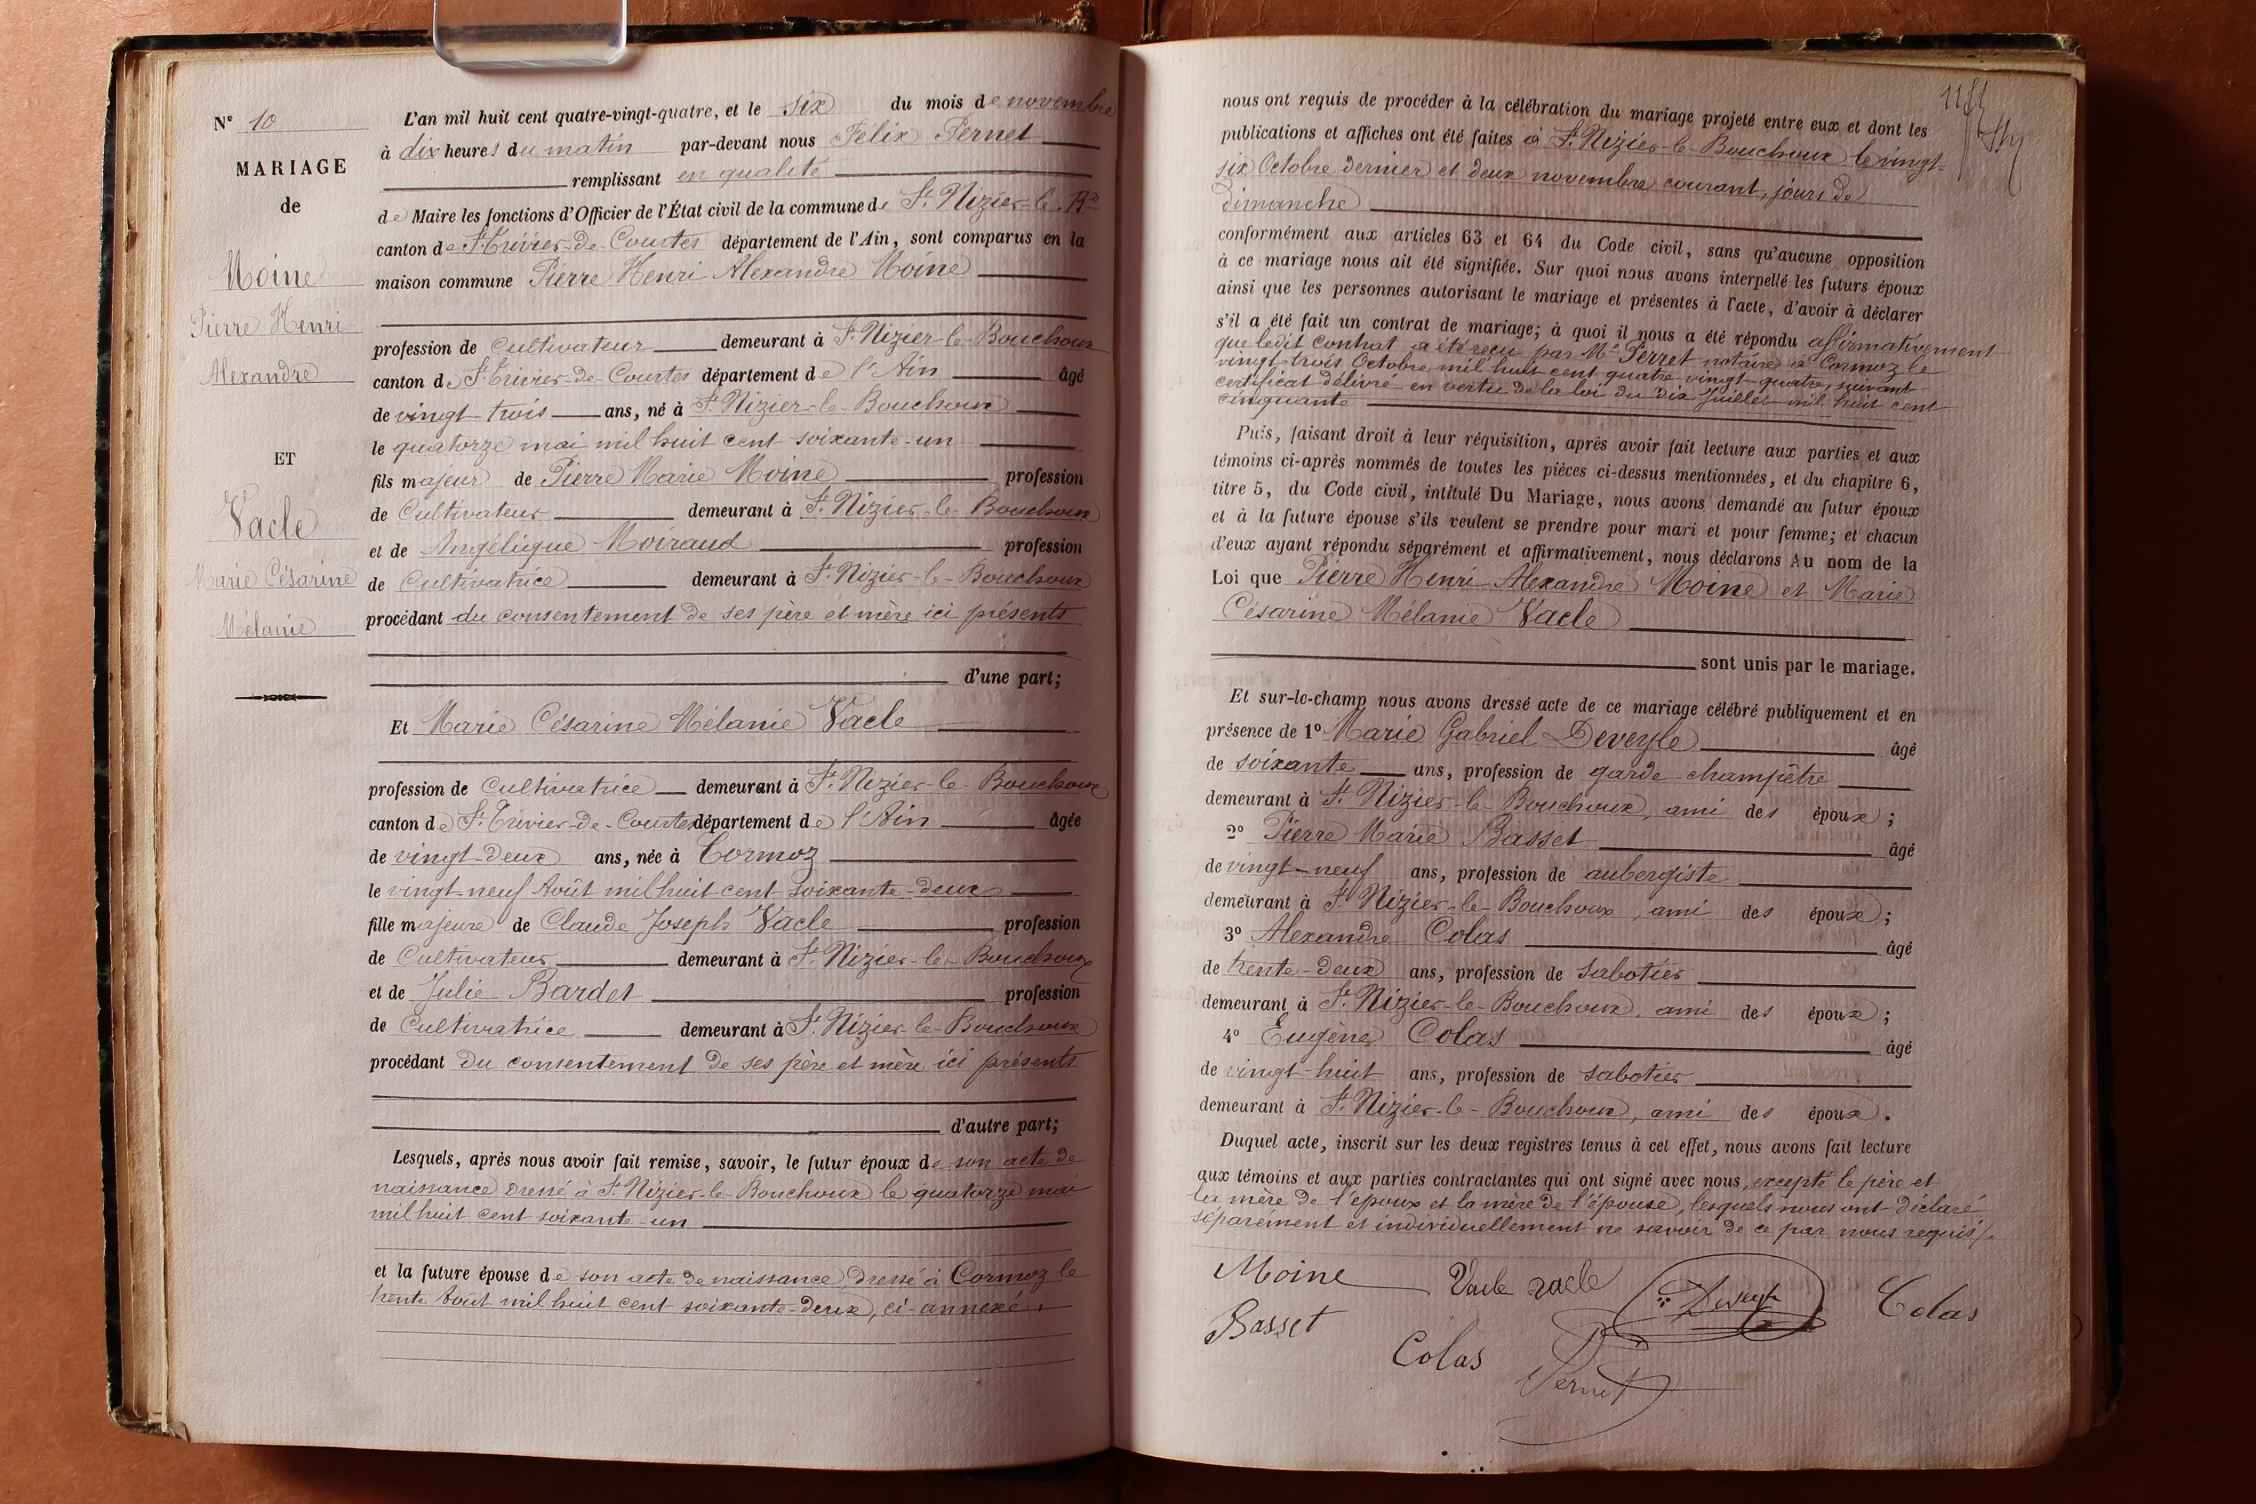 N° 10
MARIAGE
de
Moine
Pierre Henri
Alexandre
ET
Vacle
Marie Césarine
Mélanie
L'an mil huit cent quatre-vingt-quatre, et le six du mois de novembre
à dix heures du matin par-devant nous Félix Pernet
remplissant en qualité
de Maire les fonctions d'Officier de l'État civil de la commune de St Nizier-le-Bx
canton de St Trivier-de-Courtes département de l'Ain, sont comparus en la
maison commune Pierre Henri Alexandre Moine
profession de Cultivateur demeurant à St Nizier-le-Bouchoux
canton de St Trivier-de-Courtes département de l'Ain âgé
de vingt-trois ans, né à St Nizier-le-Bouchoux
le quatorze mai mil huit cent soixante-un
fils majeur de Pierre Marie Moine profession
de Cultivateur demeurant à St Nizier-le-Bouchoux
et de Angélique Moiraud profession
de Cultivatrice demeurant à St Nizier-le-Bouchoux
procédant du consentement de ses père et mère ici présents
d'une part;
Et Marie Césarine Mélanie Vacle
profession de Cultivatrice demeurant à St Nizier-le-Bouchoux
canton de St Trivier-de-Courtes département de l'Ain âgée
de vingt-deux ans, née à Cormoz
le vingt-neuf Août mil huit cent soixante-deux
fille majeure de Claude Joseph Vacle profession
de Cultivateur demeurant à St Nizier-le-Bouchoux
et de Julie Bardet profession
de Cultivatrice demeurant à St Nizier-le-Bouchoux
procédant du consentement de ses père et mère ici présents
d'autre part;
Lesquels, après nous avoir fait remise, savoir, le futur époux de son acte de
naissance dressé à St Nizier-le-Bouchoux le quatorze mai
mil huit cent soixante-un
et la future épouse de son acte de naissance, dressé à Cormoz le
trente Août mil huit cent soixante-deux, ci-annexé.
nous ont requis de procéder à la célébration du mariage projeté entre eux et dont les
publications et affiches ont été faites à St Nizier-le-Bouchoux le vingt-
six Octobre dernier et deux novembre courant, jours de
dimanche
conformément aux articles 63 et 64 du Code civil, sans qu'aucune opposition
à ce mariage nous ait été signifiée. Sur quoi nous avons interpellé les futurs époux
ainsi que les personnes autorisant le mariage et présentes à l'acte, d'avoir à déclarer
s'il a été fait un contrat de mariage; à quoi il nous a été répondu affirmativement
que ledit contrat a été reçu par Me Perret notaire à Cormoz le
vingt-trois Octobre mil huit cent quatre-vingt-quatre, suivant
certificat délivré en vertu de la loi du dix Juillet mil huit cent
cinquante
Puis, faisant droit à leur réquisition, après avoir fait lecture aux parties et aux
témoins ci-après nommés de toutes les pièces ci-dessus mentionnées, et du chapitre 6,
titre 5, du Code civil, intitulé Du Mariage, nous avons demandé au futur époux
et à la future épouse s'ils veulent se prendre pour mari et pour femme; et chacun
d'eux ayant répondu séparément et affirmativement, nous déclarons Au nom de la
Loi que Pierre Henri Alexandre Moine et Marie
Césarine Mélanie Vacle
sont unis par le mariage.
Et sur-le-champ nous avons dressé acte de ce mariage célébré publiquement et en
présence de 1° Marie Gabriel Deveyle âgé
de soixante ans, profession de garde-champêtre
demeurant à St Nizier-le-Bouchoux, ami des époux;
2° Pierre Marie Basset âgé
de vingt-neuf ans, profession de aubergiste
demeurant à St Nizier-le-Bouchoux, ami des époux;
3° Alexandre Colas âgé
de trente-deux ans, profession de sabotier
demeurant à St Nizier-le-Bouchoux, ami des époux;
4° Eugène Colas âgé
de vingt-huit ans, profession de sabotier
demeurant à St Nizier-le-Bouchoux, ami des époux.
Duquel acte, inscrit sur les deux registres tenus à cet effet, nous avons fait lecture
aux témoins et aux parties contractantes qui ont signé avec nous, excepté le père et
la mère de l'époux et la mère de l'épouse, lesquels nous ont déclaré
séparément et individuellement ne savoir de ce par nous requis.
Moine Vacle vacle Deveyle Colas
Basset Colas Pernet